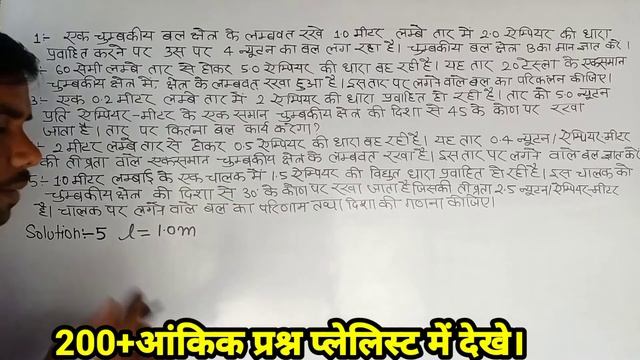 1:- एक चुम्बकीय बल क्षेत्र के लम्बवत रखे 1.0 मीटर लम्बे तार में 2.0 ऐम्पियर की धारा
प्रवाहित करने पर उस पर 4 न्यूटन का बल लग रहा है। चुम्बकीय बल क्षेत्र B का मान ज्ञात करे।
:- 60 सेमी लम्बे तार से होकर 5.0 ऐम्पियर की धारा बह रही है। यह तार 20 टेस्ला के एकसमान
चुम्बकीय क्षेत्र में, क्षेत्र के लम्बवत रखा हुआ है। इस तार पर लगने वाले बल का परिकलन कीजिए।
3:- एक 0.2 मीटर लम्बे तार में 2 ऐम्पियर की धारा प्रवाहित हो रही है। तार को 5.0 न्यूटन
प्रति ऐम्पियर-मीटर के एक समान चुम्बकीय क्षेत्र की दिशा से 45 के कोण पर रखा
जाता है। तार पर कितना बल कार्य करेगा?
:- 2 मीटर लम्बे तार से होकर 0.5 ऐम्पियर की धारा बह रही है। यह तार 0.4 न्यूटन/ऐम्पियर-मीटर
की तीव्रता वाले एकसमान चुम्बकीय क्षेत्र के लम्बवत रखा है। इस तार पर लगने वाले बल ज्ञात करे
5:- 1.0 मीटर लम्बाई के एक चालक में 1.5 ऐम्पियर की विद्युत धारा प्रवाहित हो रही है। इस चालक को
चुम्बकीय क्षेत्र की दिशा से 30° के कोण पर रखा जाता है जिसकी तीव्रता 2.5 न्यूटन/ऐम्पियर-मीटर
है। चालक पर लगने वाले बल का परिणाम तथा दिशा की गणना कीजिए।
Solution:-5 l = 1.0m
200+आंकिक प्रश्न प्लेलिस्ट में देखे।